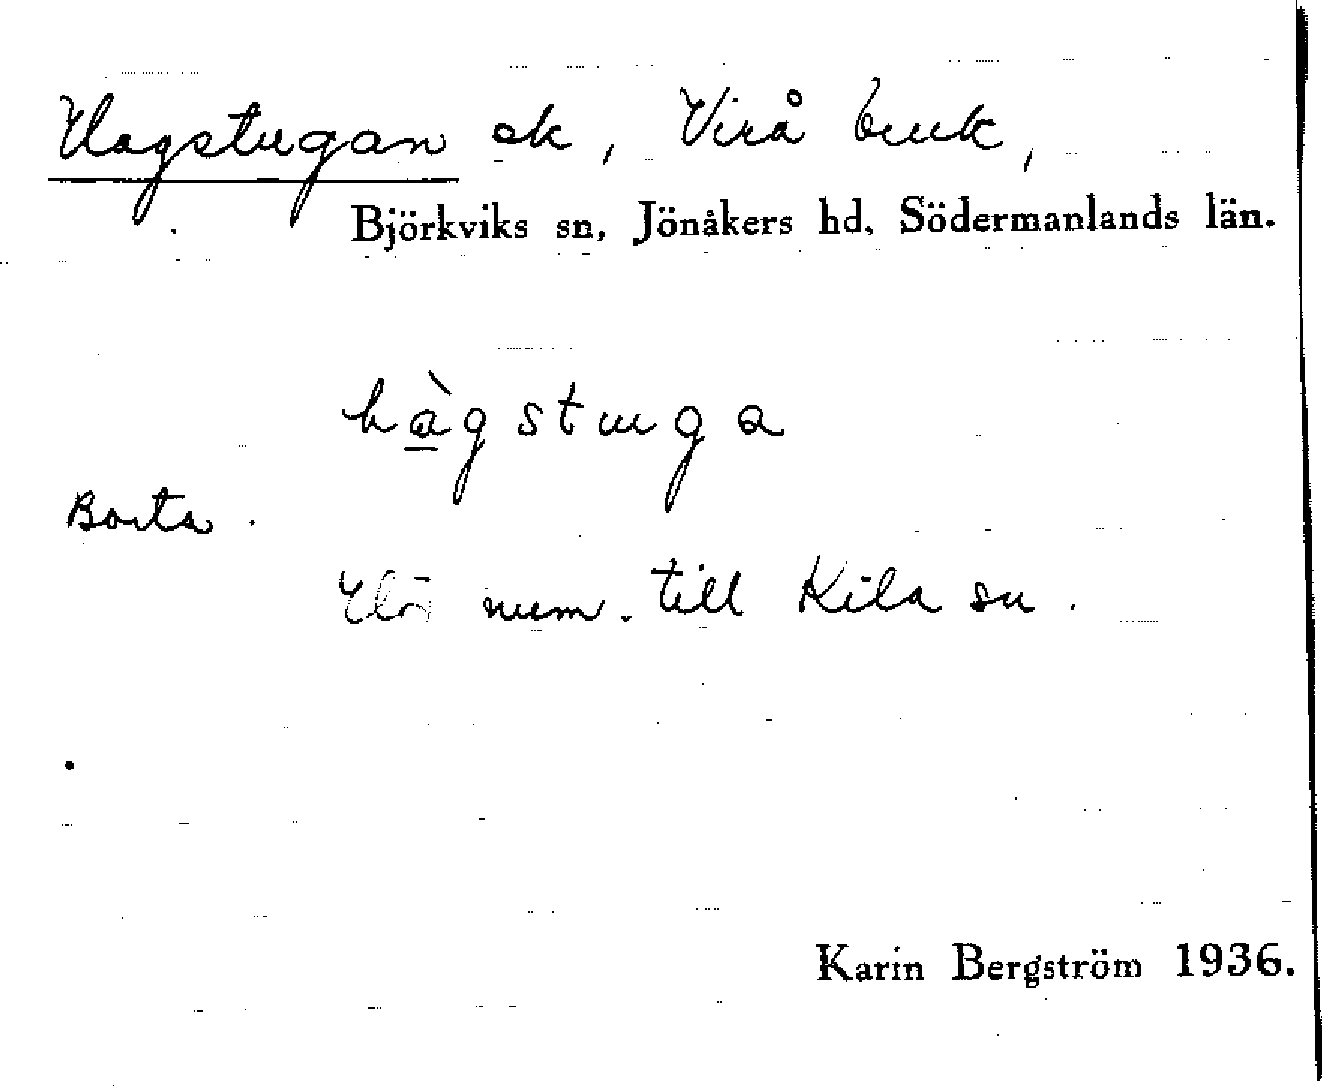 Hagstugan ek, Virå bruk,
Björkviks sn, Jönåkers hd, Södermanlands län.
hàgstuga
Borta.
Hör num. till Kila sn.
Karin Bergström 1936.